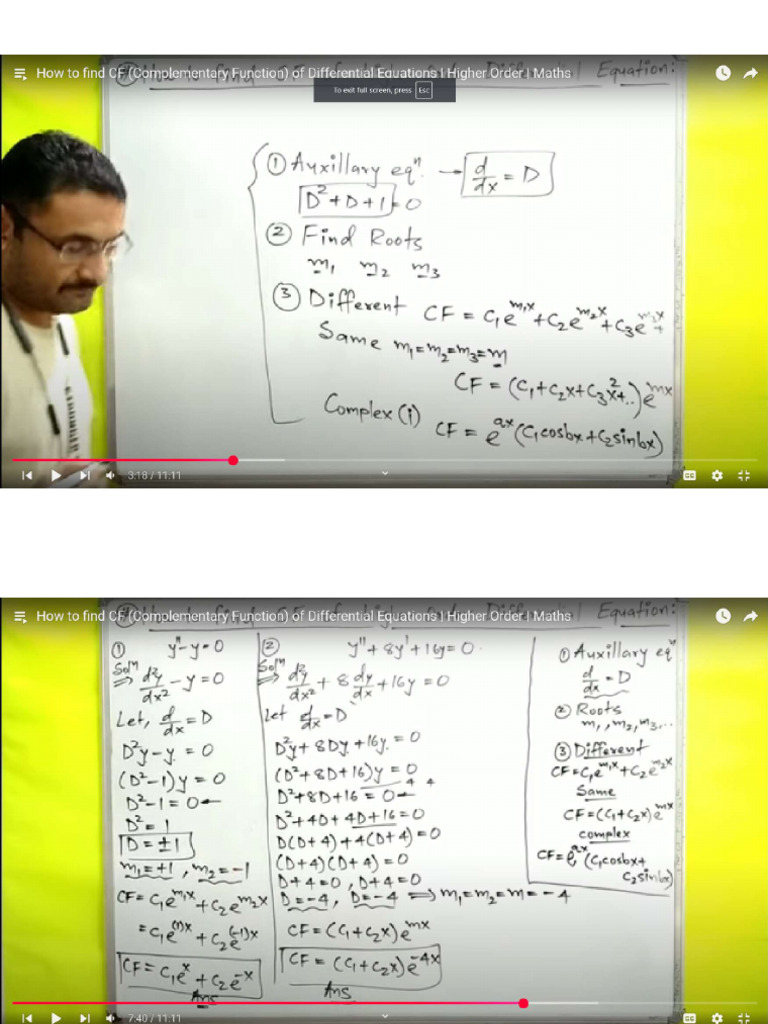 How to find CF (Complementary Function) of Differential Equations | Higher Order | Maths
Equation:
To exit full screen, press Esc
① Auxillary eqⁿ. → d/dx = D
D²+D+1=0
② Find Roots
m₁ m₂ m₃
③ Different CF = C₁e^m₁x + C₂e^m₂x + C₃e^m₃x +
Same m₁=m₂=m₃=m
CF = (C₁+C₂x+C₃x²+..)e^mx
Complex(i)
CF = e^ax (C₁cosbx+C₂sinbx)
3:18 / 11:11
How to find CF (Complementary Function) of Differential Equations | Higher Order | Maths
Equation:
① y''-y=0
Solⁿ
⇒ d²y/dx² - y = 0
Let, d/dx = D
D²y-y = 0
(D²-1)y = 0
D²-1=0
D²=1
D=±1
m₁=+1, m₂=-1
CF=C₁e^m₁x + C₂e^m₂x
=C₁e^(1)x + C₂e^(-1)x
CF=C₁e^x + C₂e^-x
Ans
② y''+8y'+16y=0.
Solⁿ
⇒ d²y/dx² + 8 dy/dx + 16y = 0
Let d/dx = D
D²y+8Dy+16y = 0
(D²+8D+16)y = 0
4 4
D²+8D+16 = 0
D²+4D+4D+16=0
D(D+4)+4(D+4)=0
(D+4)(D+4)=0
D+4=0, D+4=0
D=-4, D=-4 ⇒ m₁=m₂=m=-4
CF=(C₁+C₂x)e^mx
CF = (C₁+C₂x)e^-4x
Ans
① Auxillary eqⁿ
d/dx = D
② Roots
m₁, m₂, m₃...
③ Different
CF=C₁e^m₁x + C₂e^m₂x
Same
CF=(C₁+C₂x)e^mx
complex
CF=e^ax (C₁cosbx+
C₂sinbx)
7:40 / 11:11